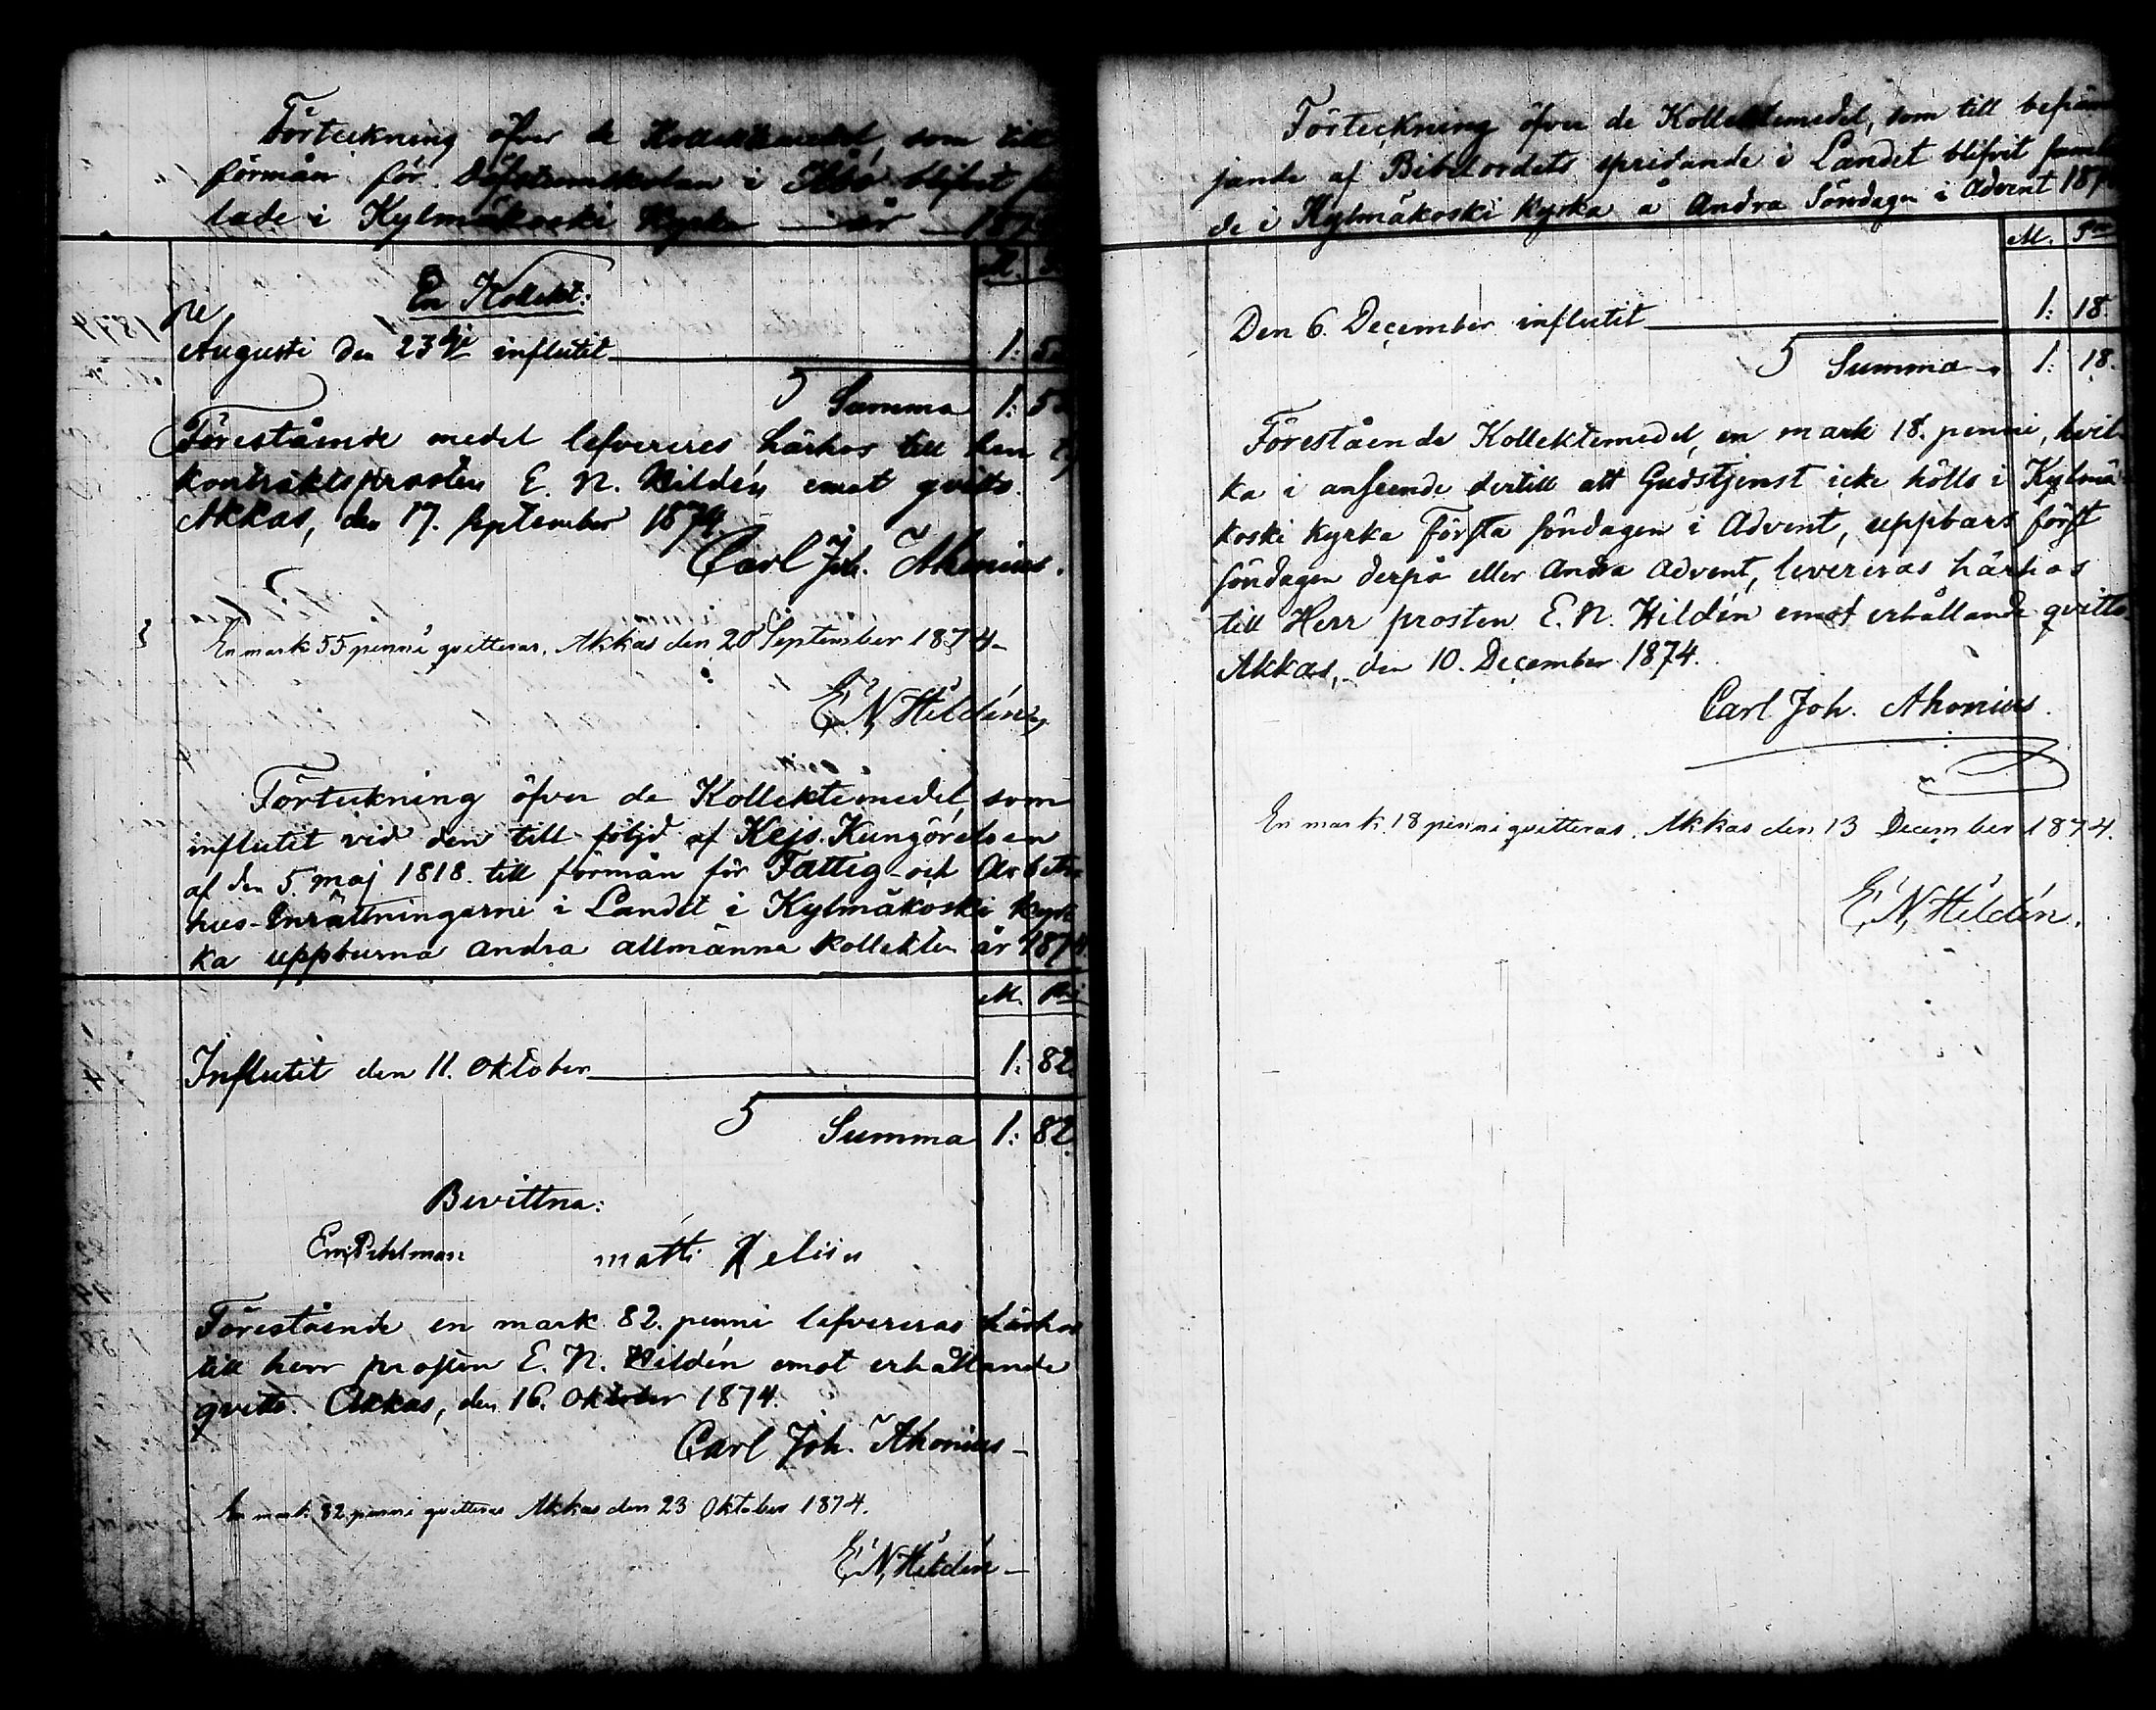 Förteckning öfver de Kollektmedel, som till
förmån för Döfstumskolan i Åbo blifvit
lade i Kylmäkoski Kyrka — år — 187
M.
En Kollekt:
Augusti den 23dje influtit 1: 5
Summa 1: 5
Förestående medel lefvereres härhos till
kontraktsprosten E. N. Hildén emot qvitto.
Akkas, den 17. September 1874
Carl Joh. Ahonius.
En mark 55 penni qvitteras, Akkas den 20 September 1874.
E. N. Hildén
Förteckning öfver de Kollektemedel, som
influtit vid den till följd af Kejs. Kungörelsen
af den 5. Maj 1818. till förmån för Fattig- och Arbets-
hus-Inrättningarne i Landet i Kylmäkoski Kyr
ka uppburna andra allmänna kollekten år 1874
M. Pni
Influtit den 11. Oktober 1: 82.
Summa 1: 82.
Bevittna:
Em. Pihlman matti Heliin
Förestående en mark 82. penni lefvereras härhos
till herr prosten E. N. Hildén emot erhållande
qvitto. Akkas, den 16. Oktober 1874.
Carl Joh. Ahonius
En mark 82 penni qvitteras Akkas den 23 Oktober 1874.
E. N. Hildén
Förteckning öfver de Kollektemedel, som till befräm
jande af Bibelordets spridande i Landet blifvit
de i Kylmäkoski kyrka å Andra Söndagen i Advent 187
M. Pni
Den 6. December influtit 1: 18.
Summa 1: 18.
Förestående Kollektemedel, en mark 18. penni, hvil-
ka i anseende dertill att Gudstjenst icke hölls i Kylmä
koski kyrka Första söndagen i Advent, uppbars först
söndagen derpå eller Andra Advent, levereras härhos
till Herr prosten E. N. Hildén emot erhållande qvitto.
Akkas, den 10. December 1874.
Carl Joh. Ahonius.
En mark 18 penni qvitteras. Akkas den 13 December 1874.
E. N. Hildén.